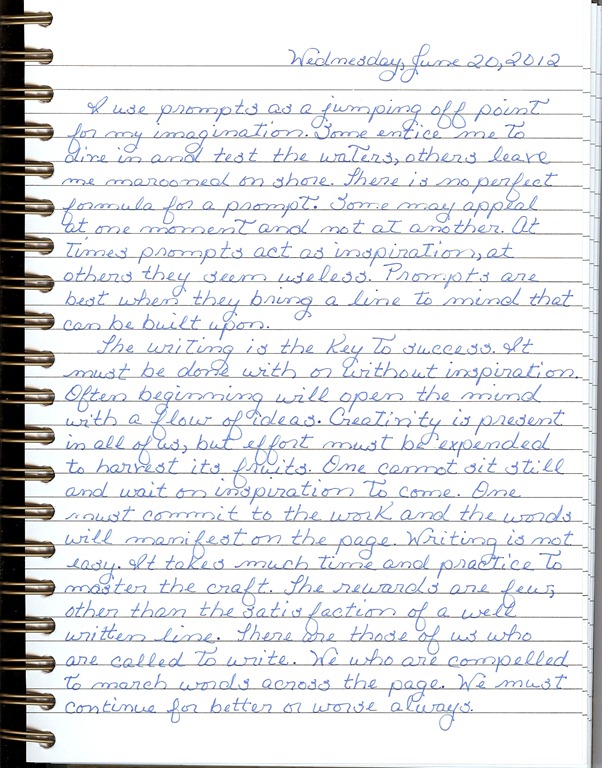 Wednesday, June 20, 2012
I use prompts as a jumping off point
for my imagination. Some entice me to
dive in and test the waters, others leave
me marooned on shore. There is no perfect
formula for a prompt. Some may appeal
at one moment and not at another. At
times prompts act as inspiration, at
others they seem useless. Prompts are
best when they bring a line to mind that
can be built upon.
The writing is the key to success. It
must be done with or without inspiration.
Often beginning will open the mind
with a flow of ideas. Creativity is present
in all of us, but effort must be expended
to harvest its fruits. One cannot sit still
and wait on inspiration to come. One
must commit to the work and the words
will manifest on the page. Writing is not
easy. It takes much time and practice to
master the craft. The rewards are few,
other than the satisfaction of a well
written line. There are those of us who
are called to write. We who are compelled
to march words across the page. We must
continue for better or worse always.